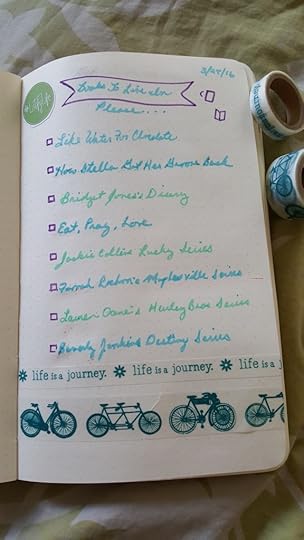 3/25/16
Books To Live In
Please...
Like Water For Chocolate
How Stella Got Her Groove Back
Bridget Jones's Diary
Eat, Pray, Love
Jackie Collins Lucky Series
Farrah Rochon's Maplesville Series
Lauren Dane's Hurley Bros Series
Beverly Jenkins Destiny Series
life is a journey. life is a journey. life is a j